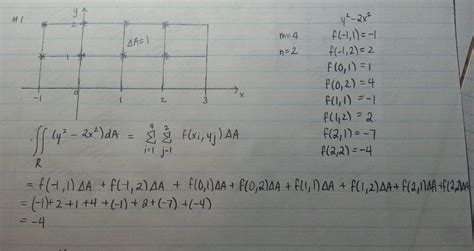 #1
y
2
1
ΔA=1
-1 0 1 2 3 x
m=4
n=2
y²-2x²
f(-1,1)=-1
f(-1,2)=2
f(0,1)=1
f(0,2)=4
f(1,1)=-1
f(1,2)=2
f(2,1)=-7
f(2,2)=-4
∬ (y²-2x²)dA = ∑ ∑ f(xi,yj)ΔA
R
4 2
i=1 j=1
= f(-1,1)ΔA + f(-1,2)ΔA + f(0,1)ΔA + f(0,2)ΔA + f(1,1)ΔA + f(1,2)ΔA + f(2,1)ΔA + f(2,2)ΔA
= (-1)+2+1+4+(-1)+2+(-7)+(-4)
= -4